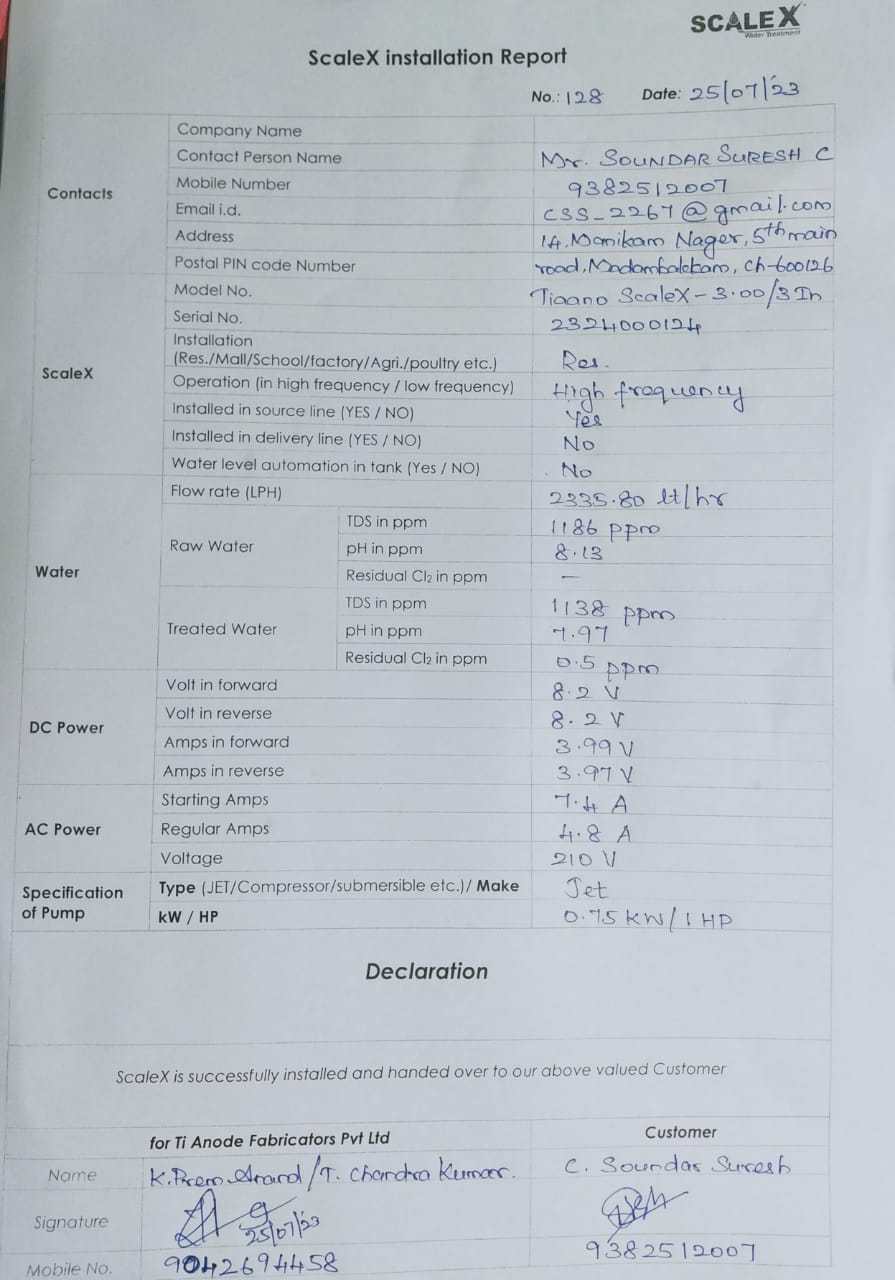 SCALEX
Water Treatment
ScaleX installation Report
No.: 128 Date: 25/07/23
Contacts
Company Name
Contact Person Name Mr. SOUNDAR SURESH C
Mobile Number 9382512007
Email i.d. css_2267@gmail.com
Address 14, Manikam Nager, 5th main
Postal PIN code Number road, Madambakkam, Ch-600126
ScaleX
Model No. Tiaano ScaleX-3.00/3 In
Serial No. 2324000124
Installation
(Res./Mall/School/factory/Agri./poultry etc.) Res.
Operation (in high frequency / low frequency) High frequency
Installed in source line (YES / NO) Yes
Installed in delivery line (YES / NO) No
Water level automation in tank (Yes / NO) No
Water
Flow rate (LPH) 2335.80 lt/hr
Raw Water
TDS in ppm 1186 ppm
pH in ppm 8.13
Residual Cl2 in ppm —
Treated Water
TDS in ppm 1138 ppm
pH in ppm 7.97
Residual Cl2 in ppm 0.5 ppm
DC Power
Volt in forward 8.2 V
Volt in reverse 8.2 V
Amps in forward 3.99 V
Amps in reverse 3.97 V
AC Power
Starting Amps 7.4 A
Regular Amps 4.8 A
Voltage 210 V
Specification
of Pump
Type (JET/Compressor/submersible etc.)/ Make Jet
kW / HP 0.75 KW/1 HP
Declaration
ScaleX is successfully installed and handed over to our above valued Customer
for Ti Anode Fabricators Pvt Ltd Customer
Name K. Prem Anand/T. Chandra Kumar. C. Soundar Suresh
Signature 25/07/23
Mobile No. 9042694458 9382512007